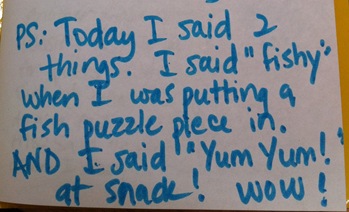 PS: Today I said 2
things. I said "fishy"
when I was putting a
fish puzzle piece in.
AND I said "Yum Yum!"
at snack! WOW!